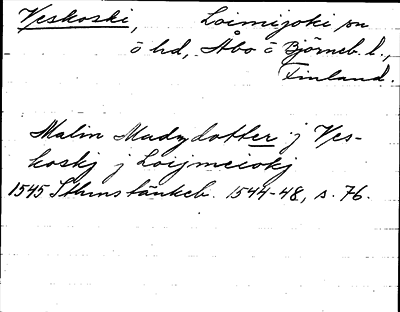 Veskoski, Loimijoki sn
ö hd, Åbo o Björneb. l.,
Finland.
Malin Madzdotter j Ves-
koskj j Loijmeiokj
1545 Sthms tänkeb. 1544-48, s. 76.